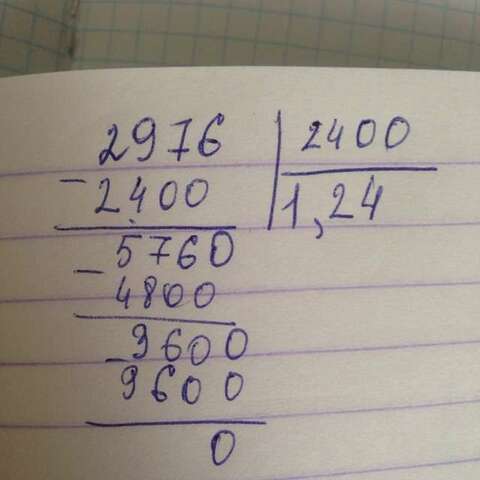 2976 | 2400
- 2400 | 1,24
5760
- 4800
- 9600
9600
0